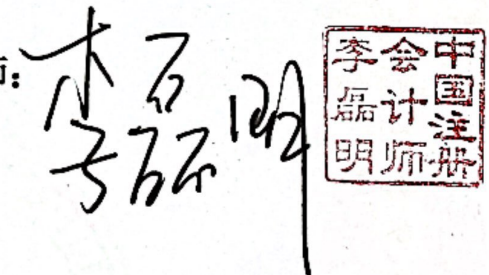 师：
李磊明
中国注册
会计师
李磊明